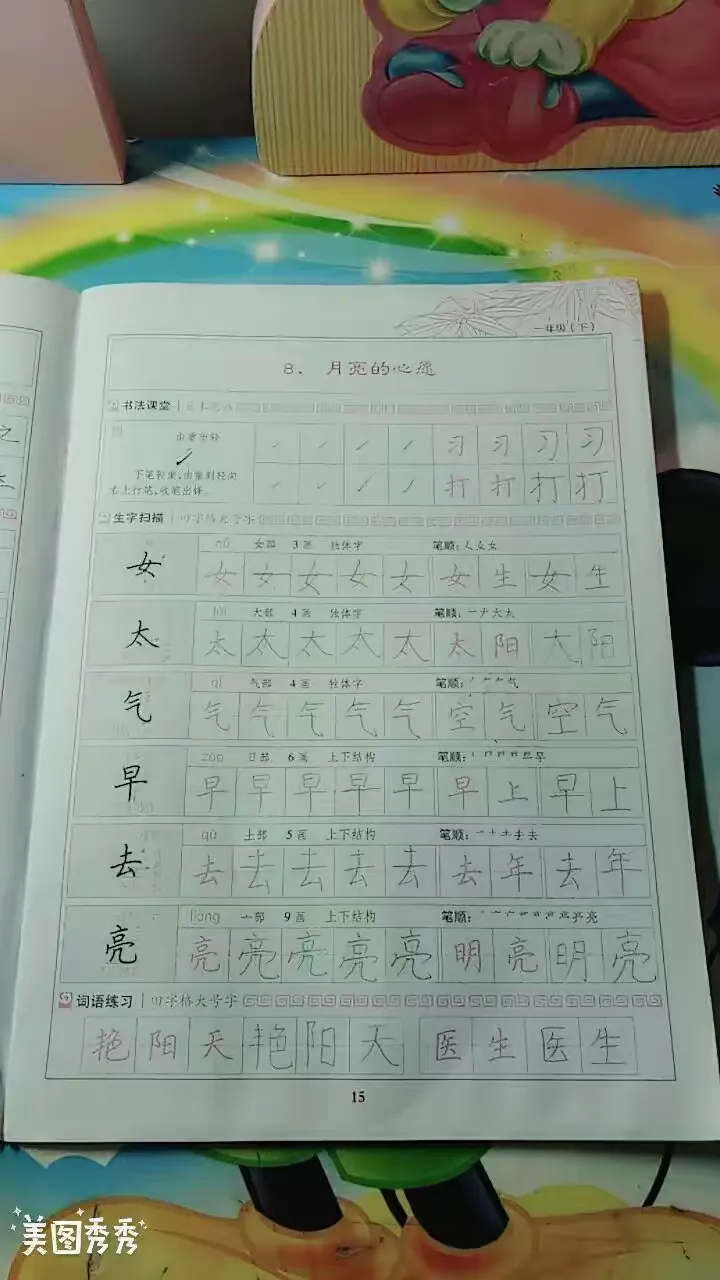 之
一年级(下)
8、月亮的心愿
书法课堂
由重市轻
下笔较重,由重到轻向
右上行笔,收笔出锋。
习 习 习 习
打 打 打 打
生字扫描 田字格大号字
女 nǚ 女部 3画 独体字 笔顺:
女 女 女 女 女 女 生 女 生
太 大部 4画 独体字 笔顺:一ナ大太
太 太 太 太 太 太 阳 大 阳
气 qì 气部 4画 独体字 笔顺:
气 气 气 气 气 空 气 空 气
早 zǎo 日部 6画 上下结构 笔顺:
早 早 早 早 早 早 上 早 上
去 qù 土部 5画 上下结构 笔顺:
去 去 去 去 去 去 年 去 年
亮 liàng 亠部 9画 上下结构 笔顺:
亮 亮 亮 亮 亮 明 亮 明 亮
词语练习 田字格大号字
艳 阳 天 艳 阳 大 医 生 医 生
15
美图秀秀